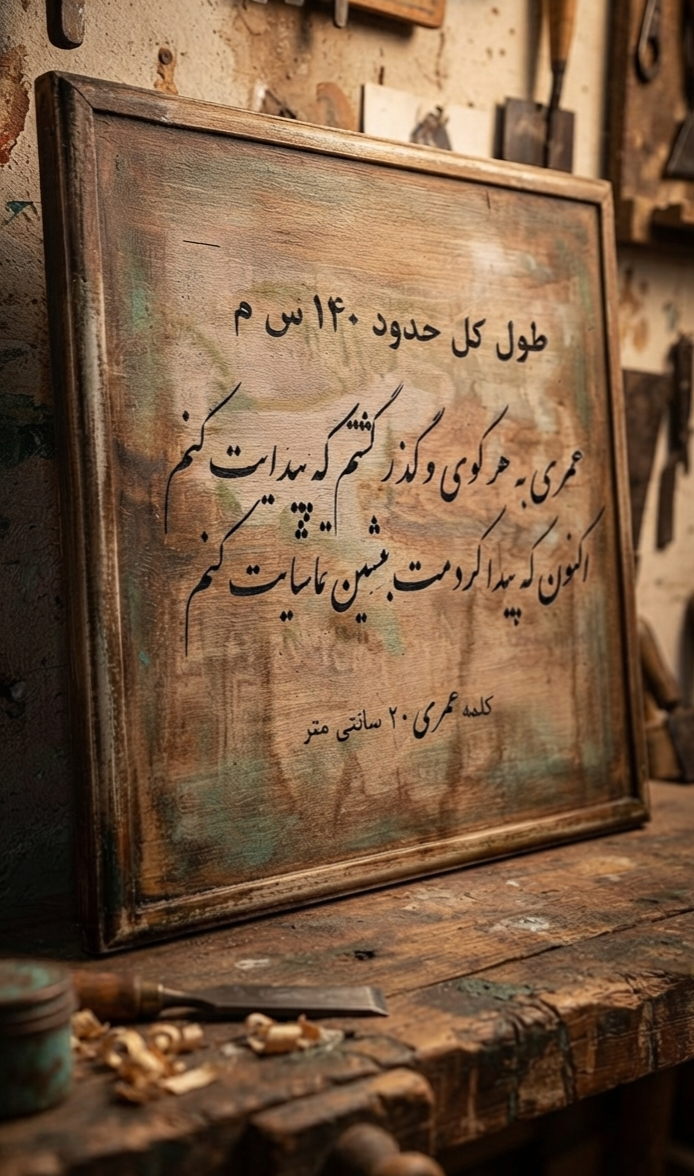 طول کل حدود ۱۴۰ س م
عمری به هر کوی و گذر گشتم که پیدایت کنم
اکنون که پیدا کردمت بنشین تماشایت کنم
کلمه عمری ۲۰ سانتی متر